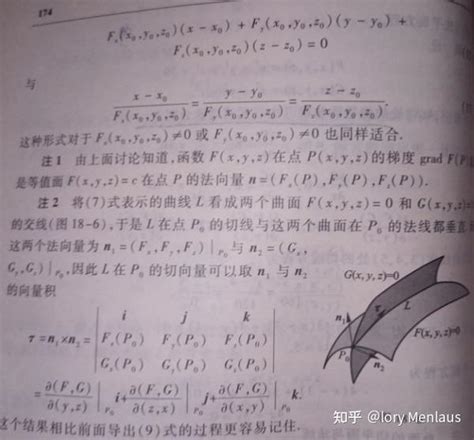 174
F_x(x_0,y_0,z_0)(x − x_0) + F_y(x_0,y_0,z_0)(y − y_0) +
F_z(x_0,y_0,z_0)(z − z_0) = 0
与
(x − x_0)/F_x(x_0,y_0,z_0) = (y − y_0)/F_y(x_0,y_0,z_0) = (z − z_0)/F_z(x_0,y_0,z_0).
这种形式对于 F_x(x_0,y_0,z_0)≠0 或 F_y(x_0,y_0,z_0)≠0 也同样适合.
注1 由上面讨论知道,函数 F(x,y,z)在点 P(x,y,z)的梯度 grad F(P)
是等值面 F(x,y,z)=c 在点 P 的法向量 n=(F_x(P),F_y(P),F_z(P)).
注2 将(7)式表示的曲线 L 看成两个曲面 F(x,y,z)=0 和 G(x,y,z)=
的交线(图18-6),于是 L 在点 P_0 的切线与这两个曲面在 P_0 的法线都垂直
这两个法向量为 n_1=(F_x,F_y,F_z)|_{P_0} 与 n_2=(G_x,
G_y,G_z)|_{P_0},因此 L 在 P_0 的切向量可以取 n_1 与 n_2
的向量积
i j k
τ=n_1×n_2= F_x(P_0) F_y(P_0) F_z(P_0)
G_x(P_0) G_y(P_0) G_z(P_0)
=∂(F,G)/∂(y,z)|_{P_0} i+∂(F,G)/∂(z,x)|_{P_0} j+∂(F,G)/∂(x,y)|_{P_0} k.
这个结果相比前面导出(9)式的过程更容易记住.
G(x,y,z)=0
n_1
τ
L
F(x,y,z)=0
P_0
n_2
知乎 @lory Menlaus